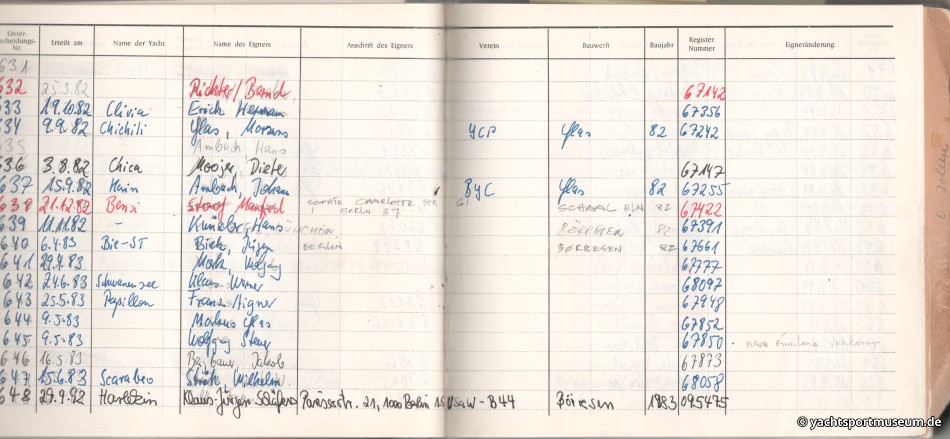 Unter-
scheidungs- Nr. Erteilt am Name der Yacht Name des Eigners Anschrift des Eigners Verein Bauwerft Baujahr Register Nummer Eigneränderung
631
632 25.3.82 Richter, Bernd 67142
633 19.10.82 Clivia Erich Hermann 67356
634 9.9.82 Chichili Glas, Markus YCP Glas 82 67242
635 Ambach Hans
636 3.8.82 Chica Moojer, Dieter 67147
637 15.9.82 Hain Ambach, Johann ByC Glas 82 67255
638 21.12.82 Benzi Manfred SOPHIE CHARLOTTE STR. 67422
BERLIN 37 SCHAAL 82
639 11.11.82 - Hans MÜNCHEN 82 67391
640 6.4.83 Bie-ST Jürgen BERLIN BØRRESEN 82 67661
641 29.4.83 Wolfgang 67777
642 24.6.83 Schwanensee Klaus Werner 68097
643 25.5.83 Papillon Franz Aigner 67948
644 9.5.83 Markus Glas 67852
645 9.5.83 Wolfgang 67850 NACH FINNLAND VERKAUFT
646 16.5.83 Jakob 67873
647 15.6.83 Scarabeo Wilhelm 68058
648 29.9.92 Klaus-Jürgen 21, 1000 Berlin 15 - B44 Böresen 1983 095475
© yachtsportmuseum.de